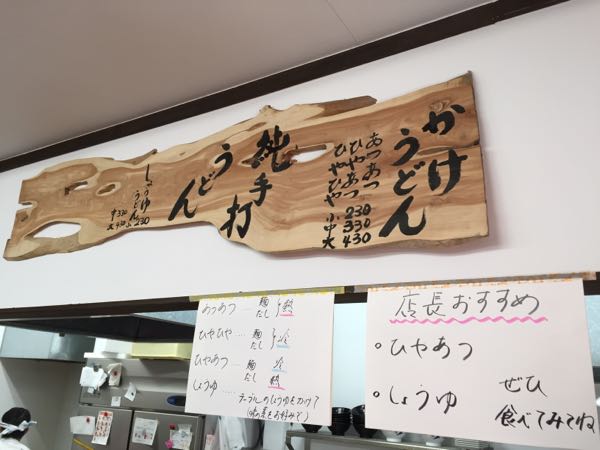 かけ
うどん
あつあつ
ひやあつ
ひやひや
小 230
中 330
大 430
純手打
うどん
しょうゆ
うどん
小 230
中 330
大 430
あつあつ … 麺 だし 熱
ひやひや … 麺 だし 冷
ひやあつ … 麺 冷
だし 熱
しょうゆ …… テーブルのしょうゆをかけて
店長おすすめ
◦ ひやあつ
◦ しょうゆ
ぜひ
食べてみてね